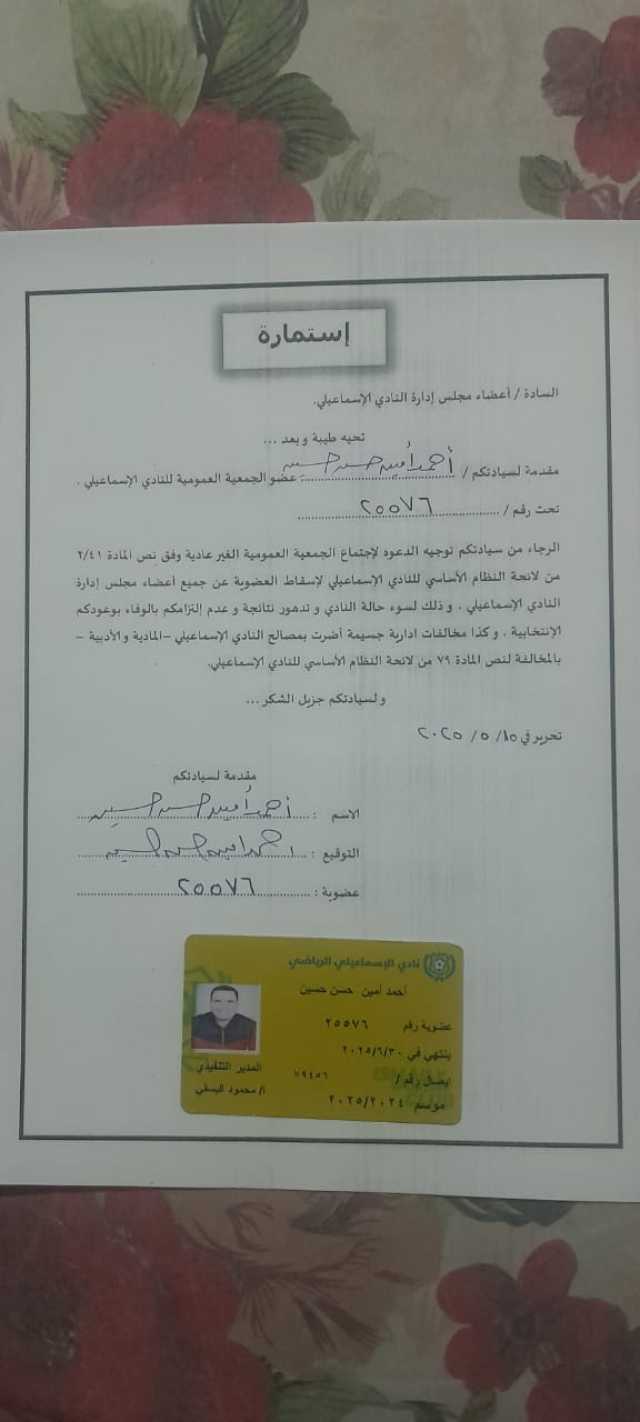 إستمارة
السادة / أعضاء مجلس إدارة النادي الإسماعيلي.
تحيه طيبة و بعد ...
مقدمة لسيادتكم / أحمد أمين حسن حسين عضو الجمعية العمومية للنادي الإسماعيلي .
تحت رقم / ٢٥٥٧٦
الرجاء من سيادتكم توجيه الدعوه لإجتماع الجمعية العمومية الغير عادية وفق نص المادة ٢/٤١
من لائحة النظام الأساسي للنادي الإسماعيلي لإسقاط العضوية عن جميع أعضاء مجلس إدارة
النادي الإسماعيلي ، و ذلك لسوء حالة النادي و تدهور نتائجة و عدم إلتزامكم بالوفاء بوعودكم
الإنتخابية ، و كذا مخالفات ادارية جسيمة أضرت بمصالح النادي الإسماعيلي –المادية و الأدبية –
بالمخالفة لنص المادة ٧٩ من لائحة النظام الأساسي للنادي الإسماعيلي.
و لسيادتكم جزيل الشكر ...
تحرير في ١٥/ ٥ / ٢٠٢٥
مقدمة لسيادتكم
الاسم : أحمد أمين حسن حسين
التوقيع : احمد امين حسن حسين
عضوية : ٢٥٥٧٦
نادي الإسماعيلي الرياضي
أحمد أمين حسن حسين
عضوية رقم ٢٥٥٧٦
ينتهي في ٢٠٢٥/٦/٣٠
ايصال رقم /
موسم ٢٠٢٥/٢٠٢٤
المدير التنفيذي
ا/ محمود